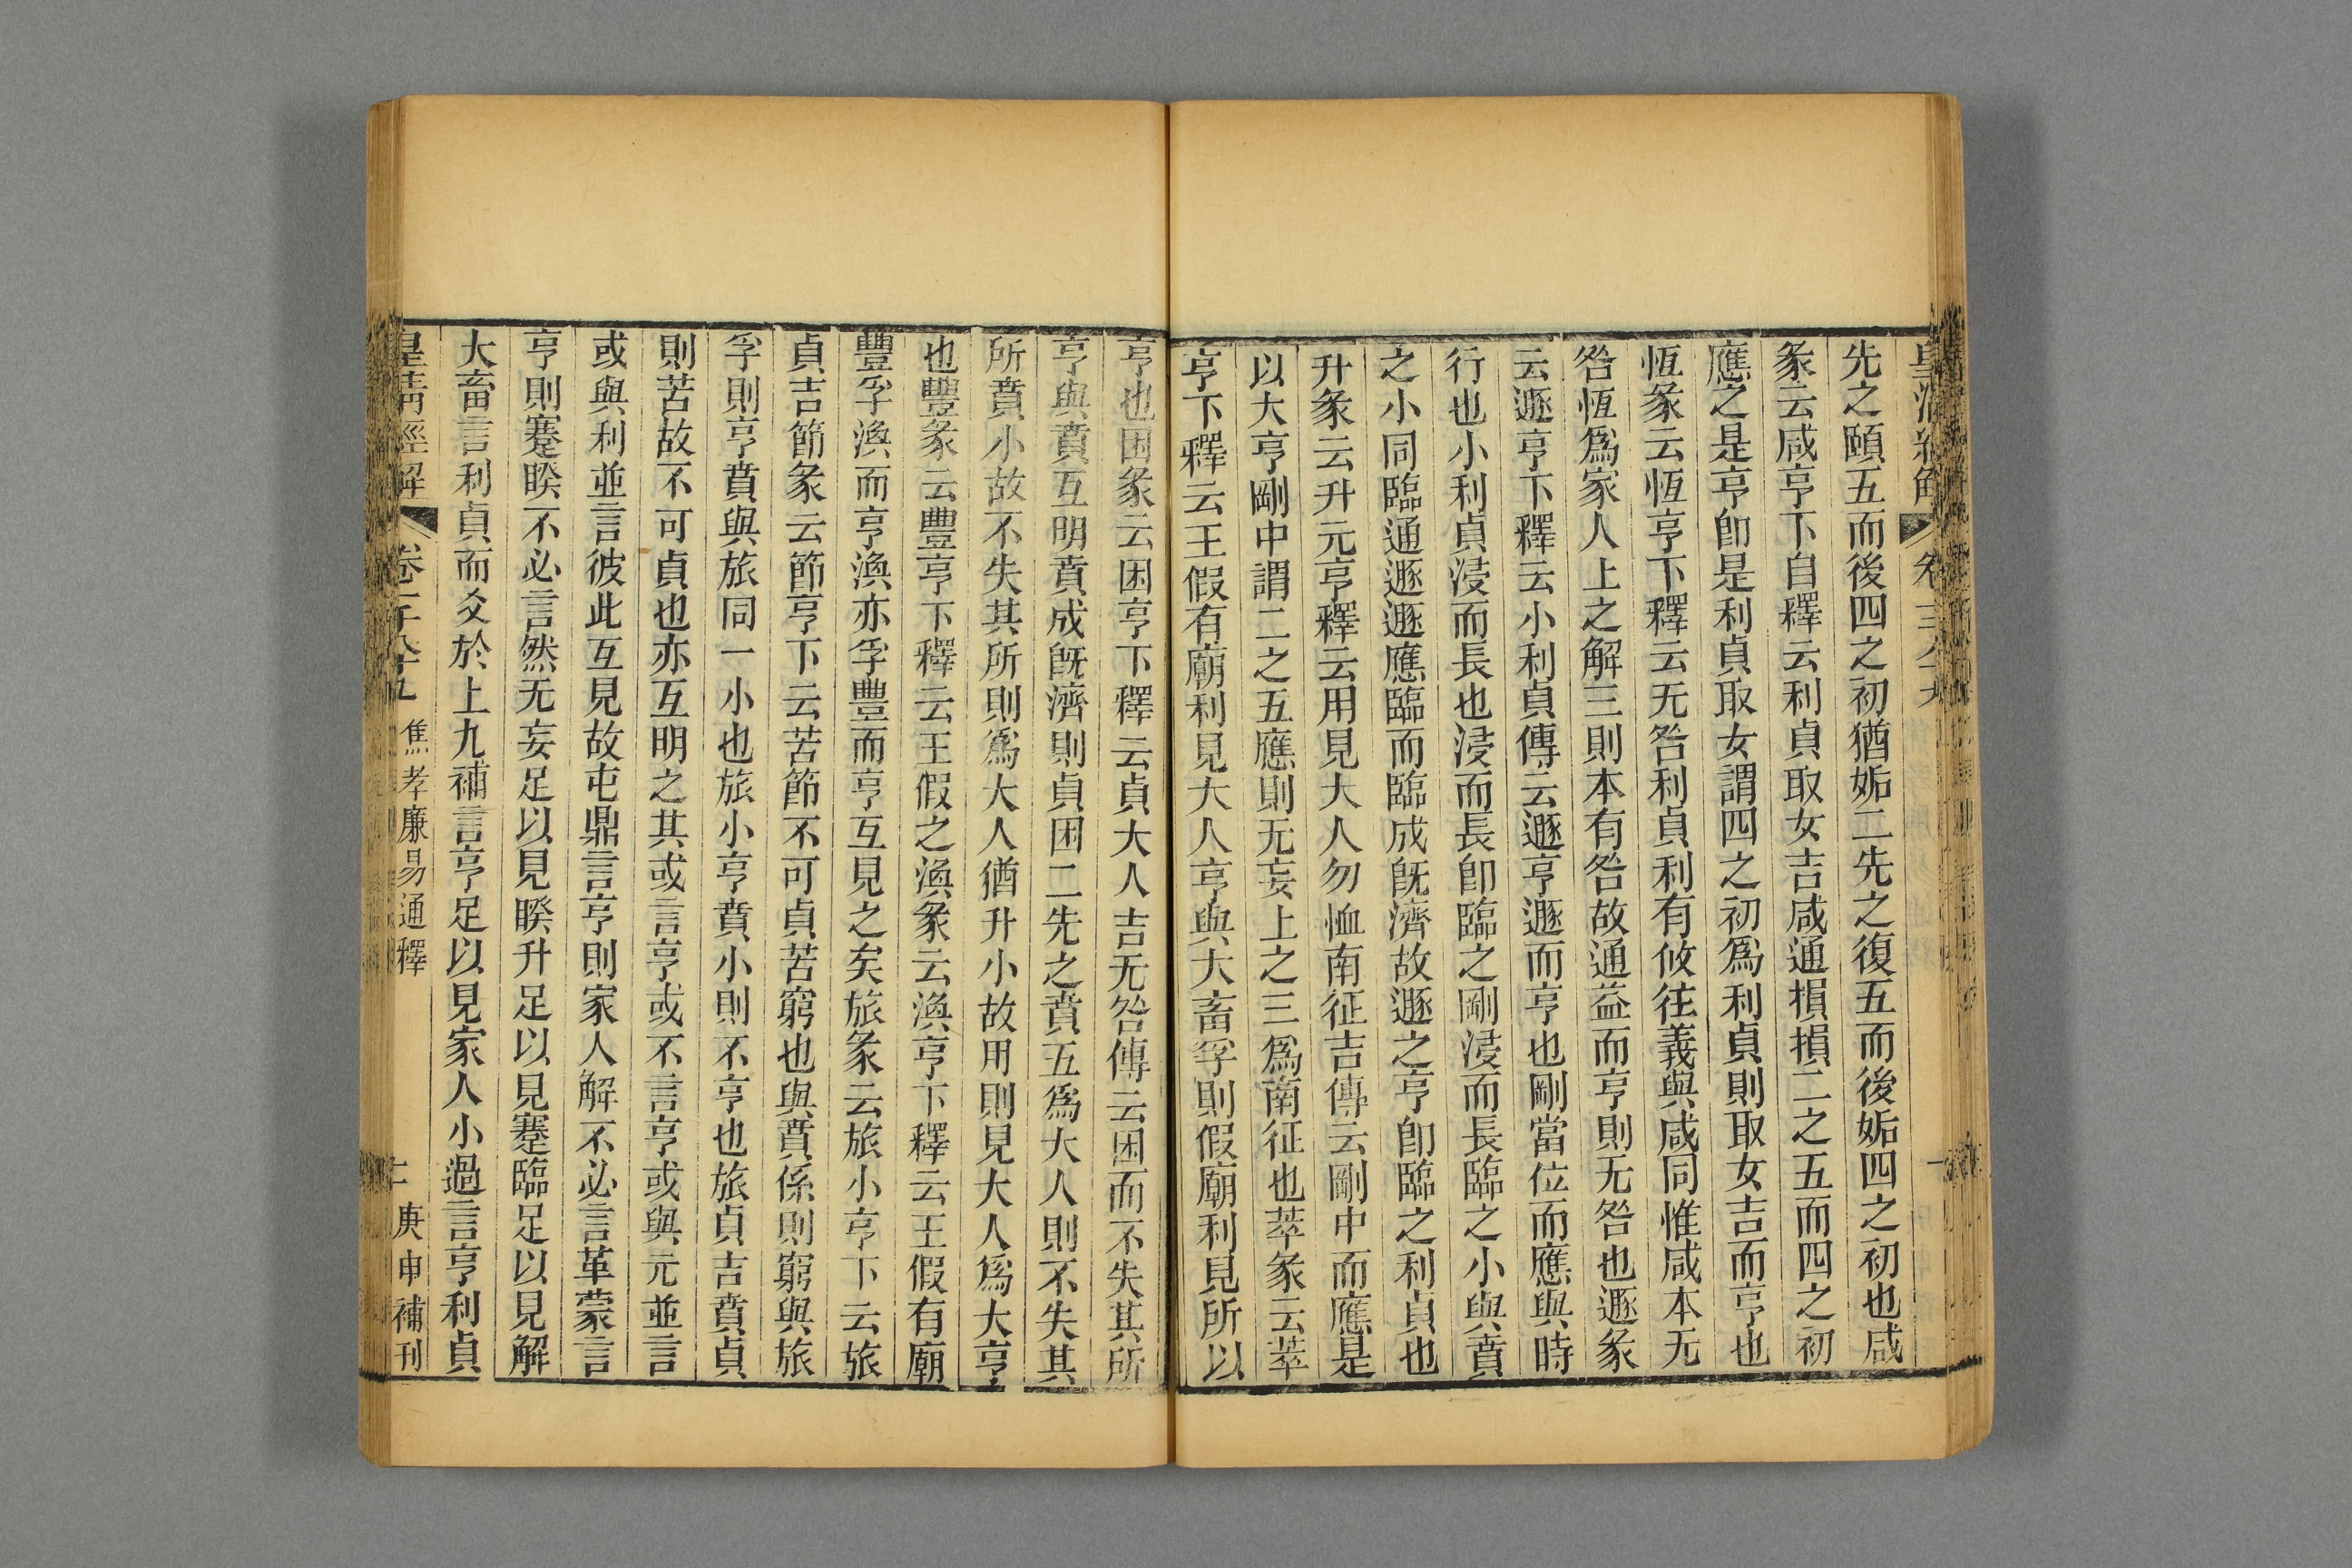 先之頤五而後四之初猶姤二先之復五而後姤四之初也咸
彖云咸亨下自釋云利貞取女吉咸通損損二之五而四之初
應之是亨卽是利貞取女謂四之初爲利貞則取女吉而亨也
恆彖云恆亨下釋云无咎利貞利有攸往義與咸同惟咸本无
咎恆爲家人上之解三則本有咎故通益而亨則无咎也遯彖
云遯亨下釋云小利貞傳云遯亨遯而亨也剛當位而應與時
行也小利貞浸而長也浸而長卽臨之剛浸而長臨之小與賁
之小同臨通遯遯應臨而臨成旣濟故遯之亨卽臨之利貞也
升彖云升元亨釋云用見大人勿恤南征吉傳云剛中而應是
以大亨剛中謂二之五應則无妄上之三爲南征也萃彖云萃
亨下釋云王假有廟利見大人亨與大畜孚則假廟利見所以
亨也困彖云困亨下釋云貞大人吉无咎傳云困而不失其所
亨與賁互明賁成旣濟則貞困二先之賁五爲大人則不失其
所賁小故不失其所則爲大人猶升小故用則見大人爲大亨
也豐彖云豐亨下釋云王假之渙彖云渙亨下釋云王假有廟
豐孚渙而亨渙亦孚豐而亨互見之矣旅彖云旅小亨下云旅
貞吉節彖云節亨下云苦節不可貞苦窮也與賁係則窮與旅
孚則亨賁與旅同一小也旅小亨賁小則不亨也旅貞吉賁貞
則苦故不可貞也亦互明之其或言亨或不言亨或與元並言
或與利並言彼此互見故屯鼎言亨則家人解不必言革蒙言
亨則蹇睽不必言然无妄足以見睽升足以見蹇臨足以見解
大畜言利貞而爻於上九補言亨足以見家人小過言亨利貞
皇清經解 卷一千八十九 焦孝廉易通釋 二 庚申補刊